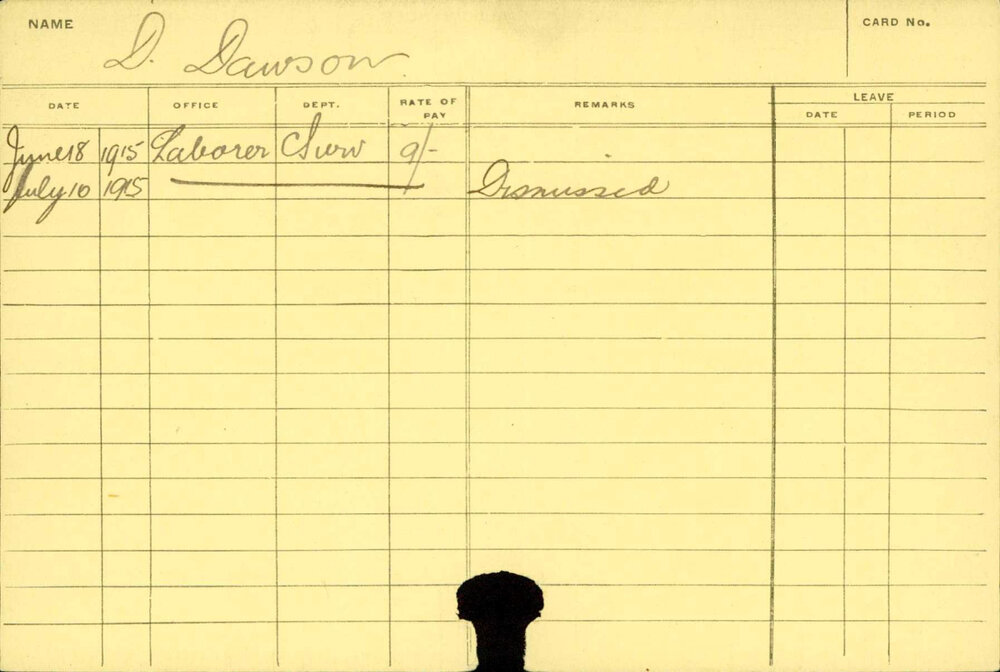 NAME D. Dawson CARD No.
DATE OFFICE DEPT. RATE OF PAY REMARKS LEAVE
DATE PERIOD
June 18 1915 Laborer Surv 9/-
July 10 1915 Dismissed